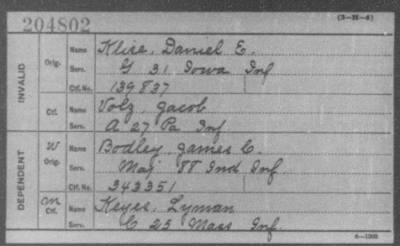 204802
(3-II-6)
INVALID
Orig.
Name Klise, Daniel E.
Serv. G 31 Iowa Inf
Ctf. No. 139837
Ctf.
Name Volz, Jacob
Serv. A 27 Pa Inf
DEPENDENT
W
Orig.
Name Bodley, James C.
Serv. Maj 88 Ind Inf
Ctf. No. 343351
m
Ctf.
Name Keyes, Lyman
Serv. C 25 Mass Inf